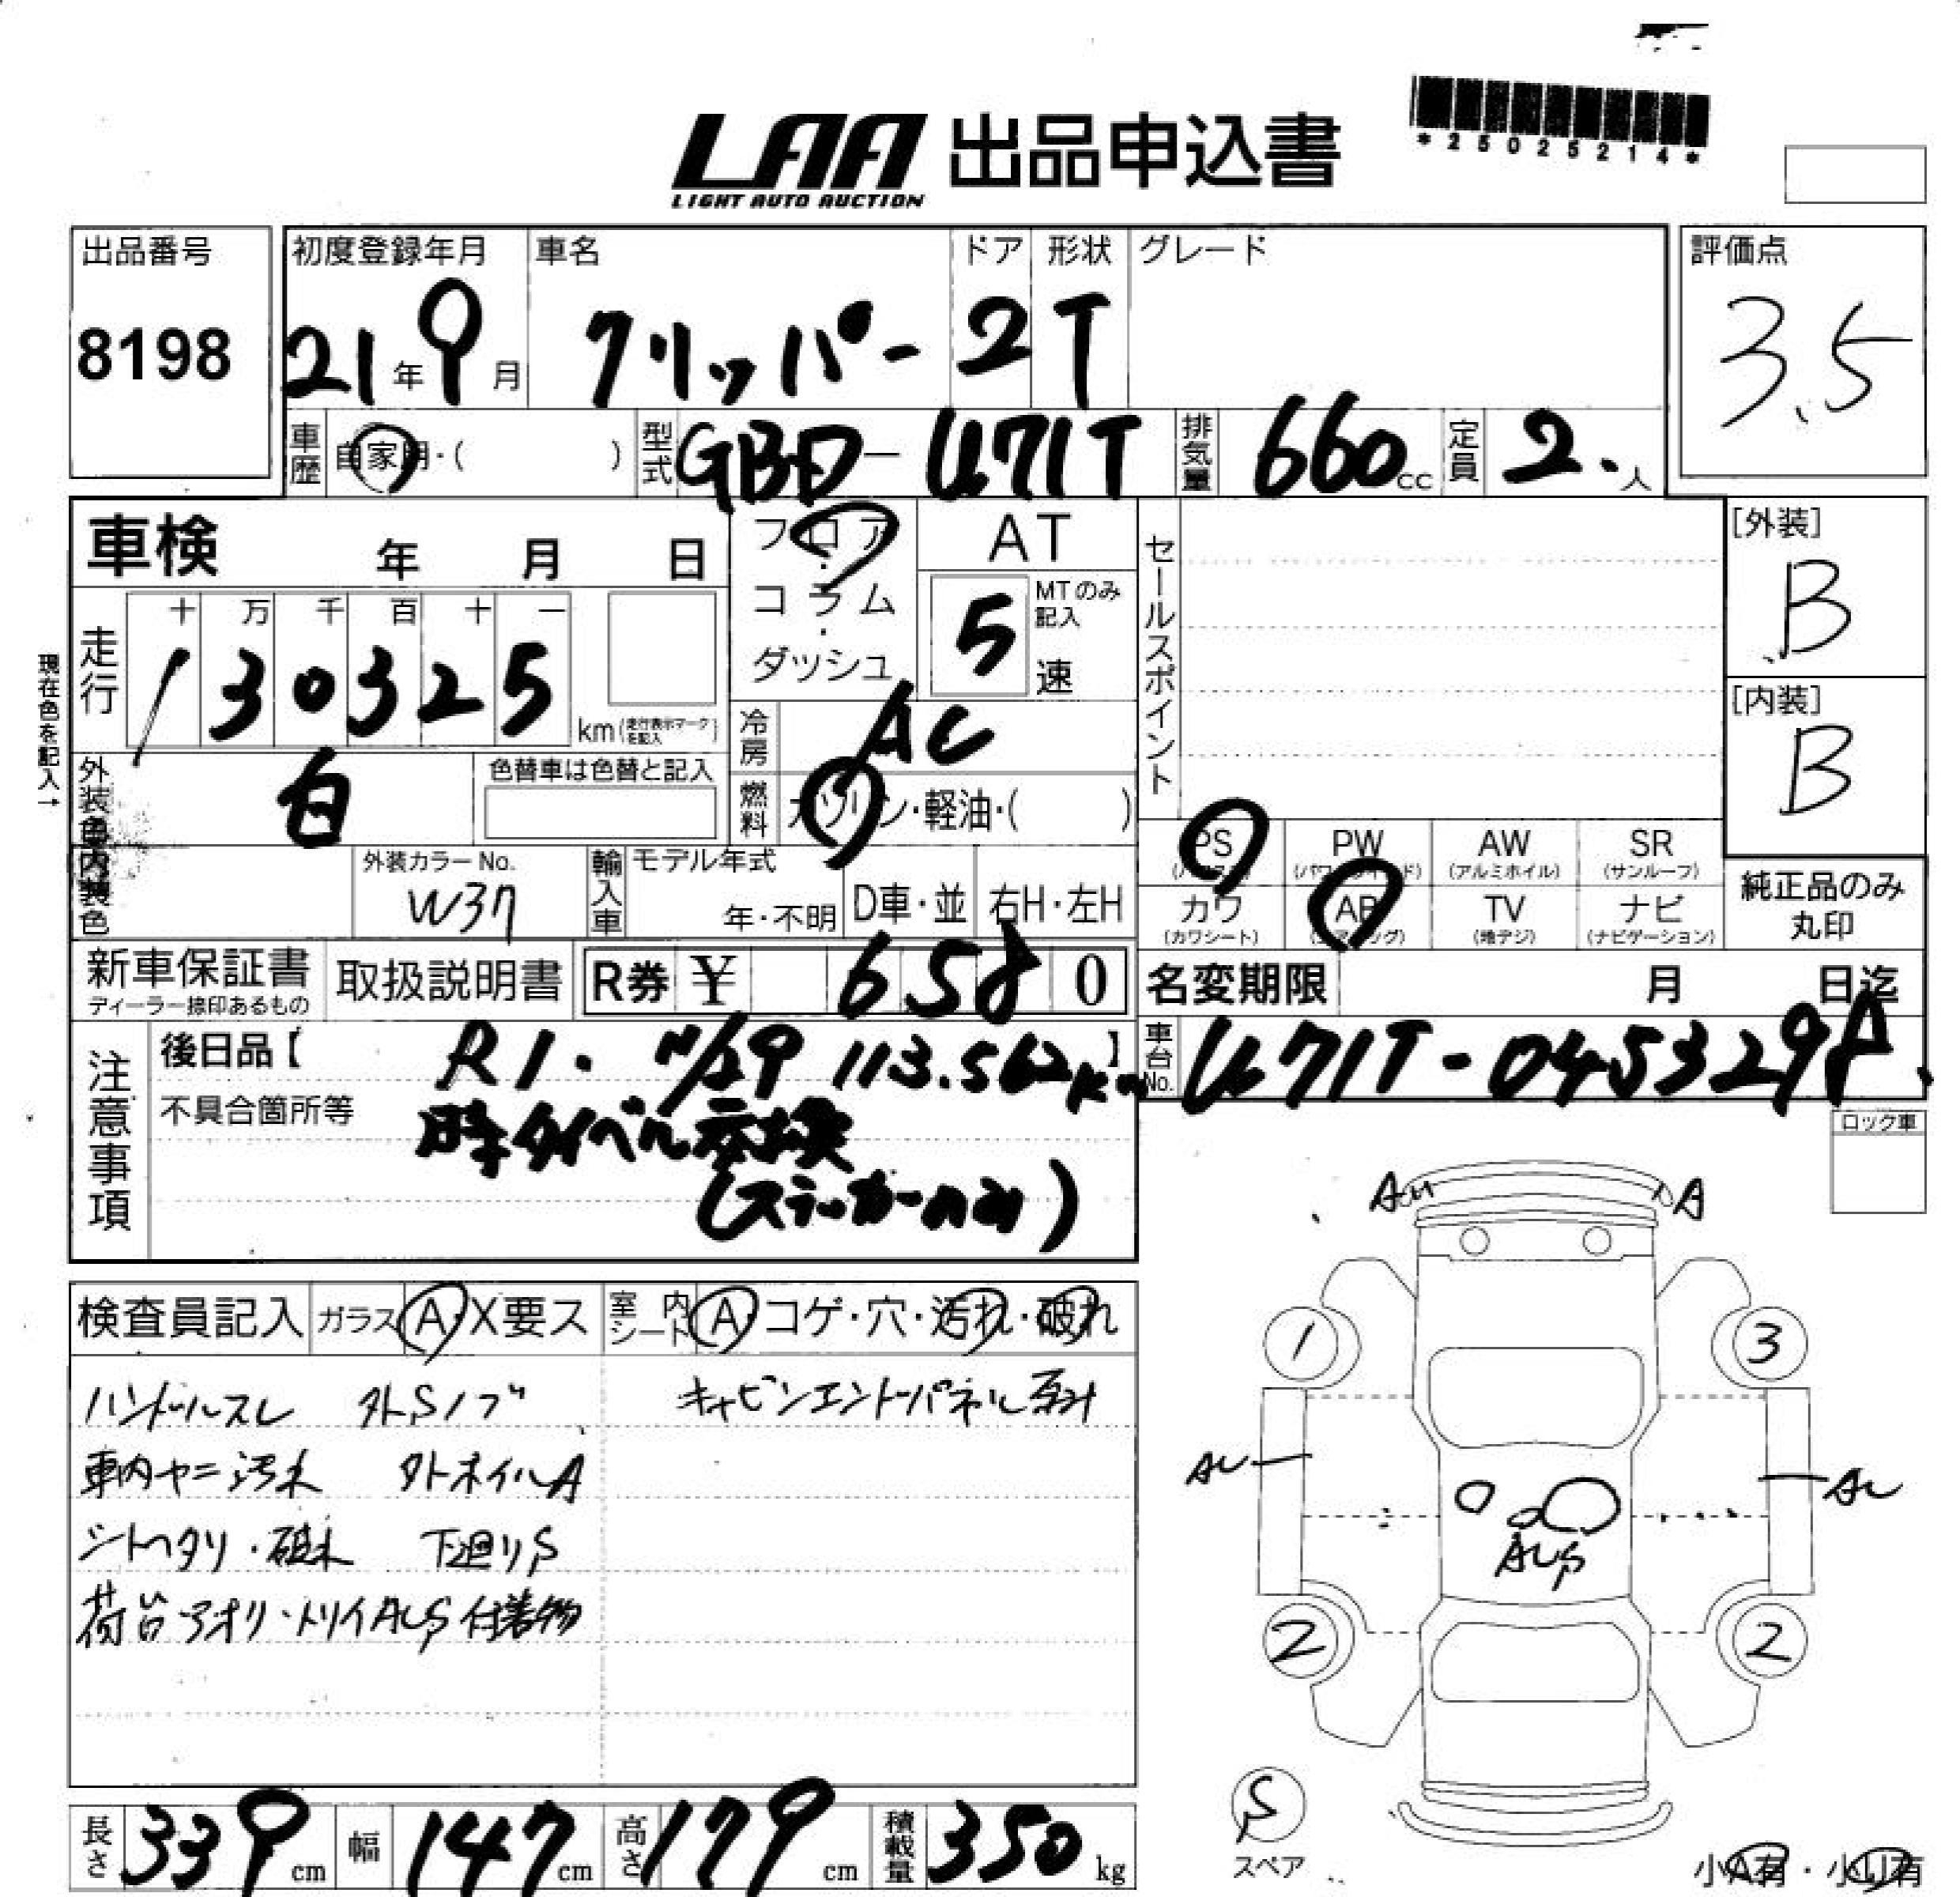 *25025214*
LAA 出品申込書
LIGHT AUTO AUCTION
出品番号
8198
初度登録年月
21年9月
車名
クリッパー
ドア
2
形状
T
グレード
評価点
3.5
車歴
自家用・( )
型式
GBD-U71T
排気量
660cc
定員
2.人
車検 年 月 日
走行
十 万 千 百 十 一
130325
km(走行表示マークを記入)
現在色を記入→
外装色
白
色替車は色替と記入
内装色
外装カラーNo.
W37
フロア・コラム・ダッシュ
AT
MTのみ記入
5
速
冷房
AC
燃料
ガソリン・軽油・( )
輸入車
モデル年式
年・不明
D車・並
右H・左H
セールスポイント
[外装]
B
[内装]
B
PS
PW
AW
(アルミホイル)
SR
(サンルーフ)
カワ
(カワシート)
AB
TV
(地デジ)
ナビ
(ナビゲーション)
純正品のみ丸印
新車保証書
ディーラー捺印あるもの
取扱説明書
R券 ¥ 6580
名変期限 月 日迄
車台No.
U71T-045329
注意事項
後日品【 】
R1. 11/29 113.562km
不具合箇所等
時タイベル交換
(ステッカーのみ)
ロック車
検査員記入
ガラス A・X要ス
室内シート A・コゲ・穴・汚れ・破れ
ハンドルスレ 外Sノブ キャビンエンドパネル
車内ヤニ汚れ 外ホイルA
シートヘタリ・破れ 下廻りS
荷台・アオリ・トリイAUS付着物
AU
A
1
3
AU
AU
AUS
2
2
S
スペア
小A有・小U有
長さ 339cm
幅 147cm
高さ 179cm
積載量 350kg